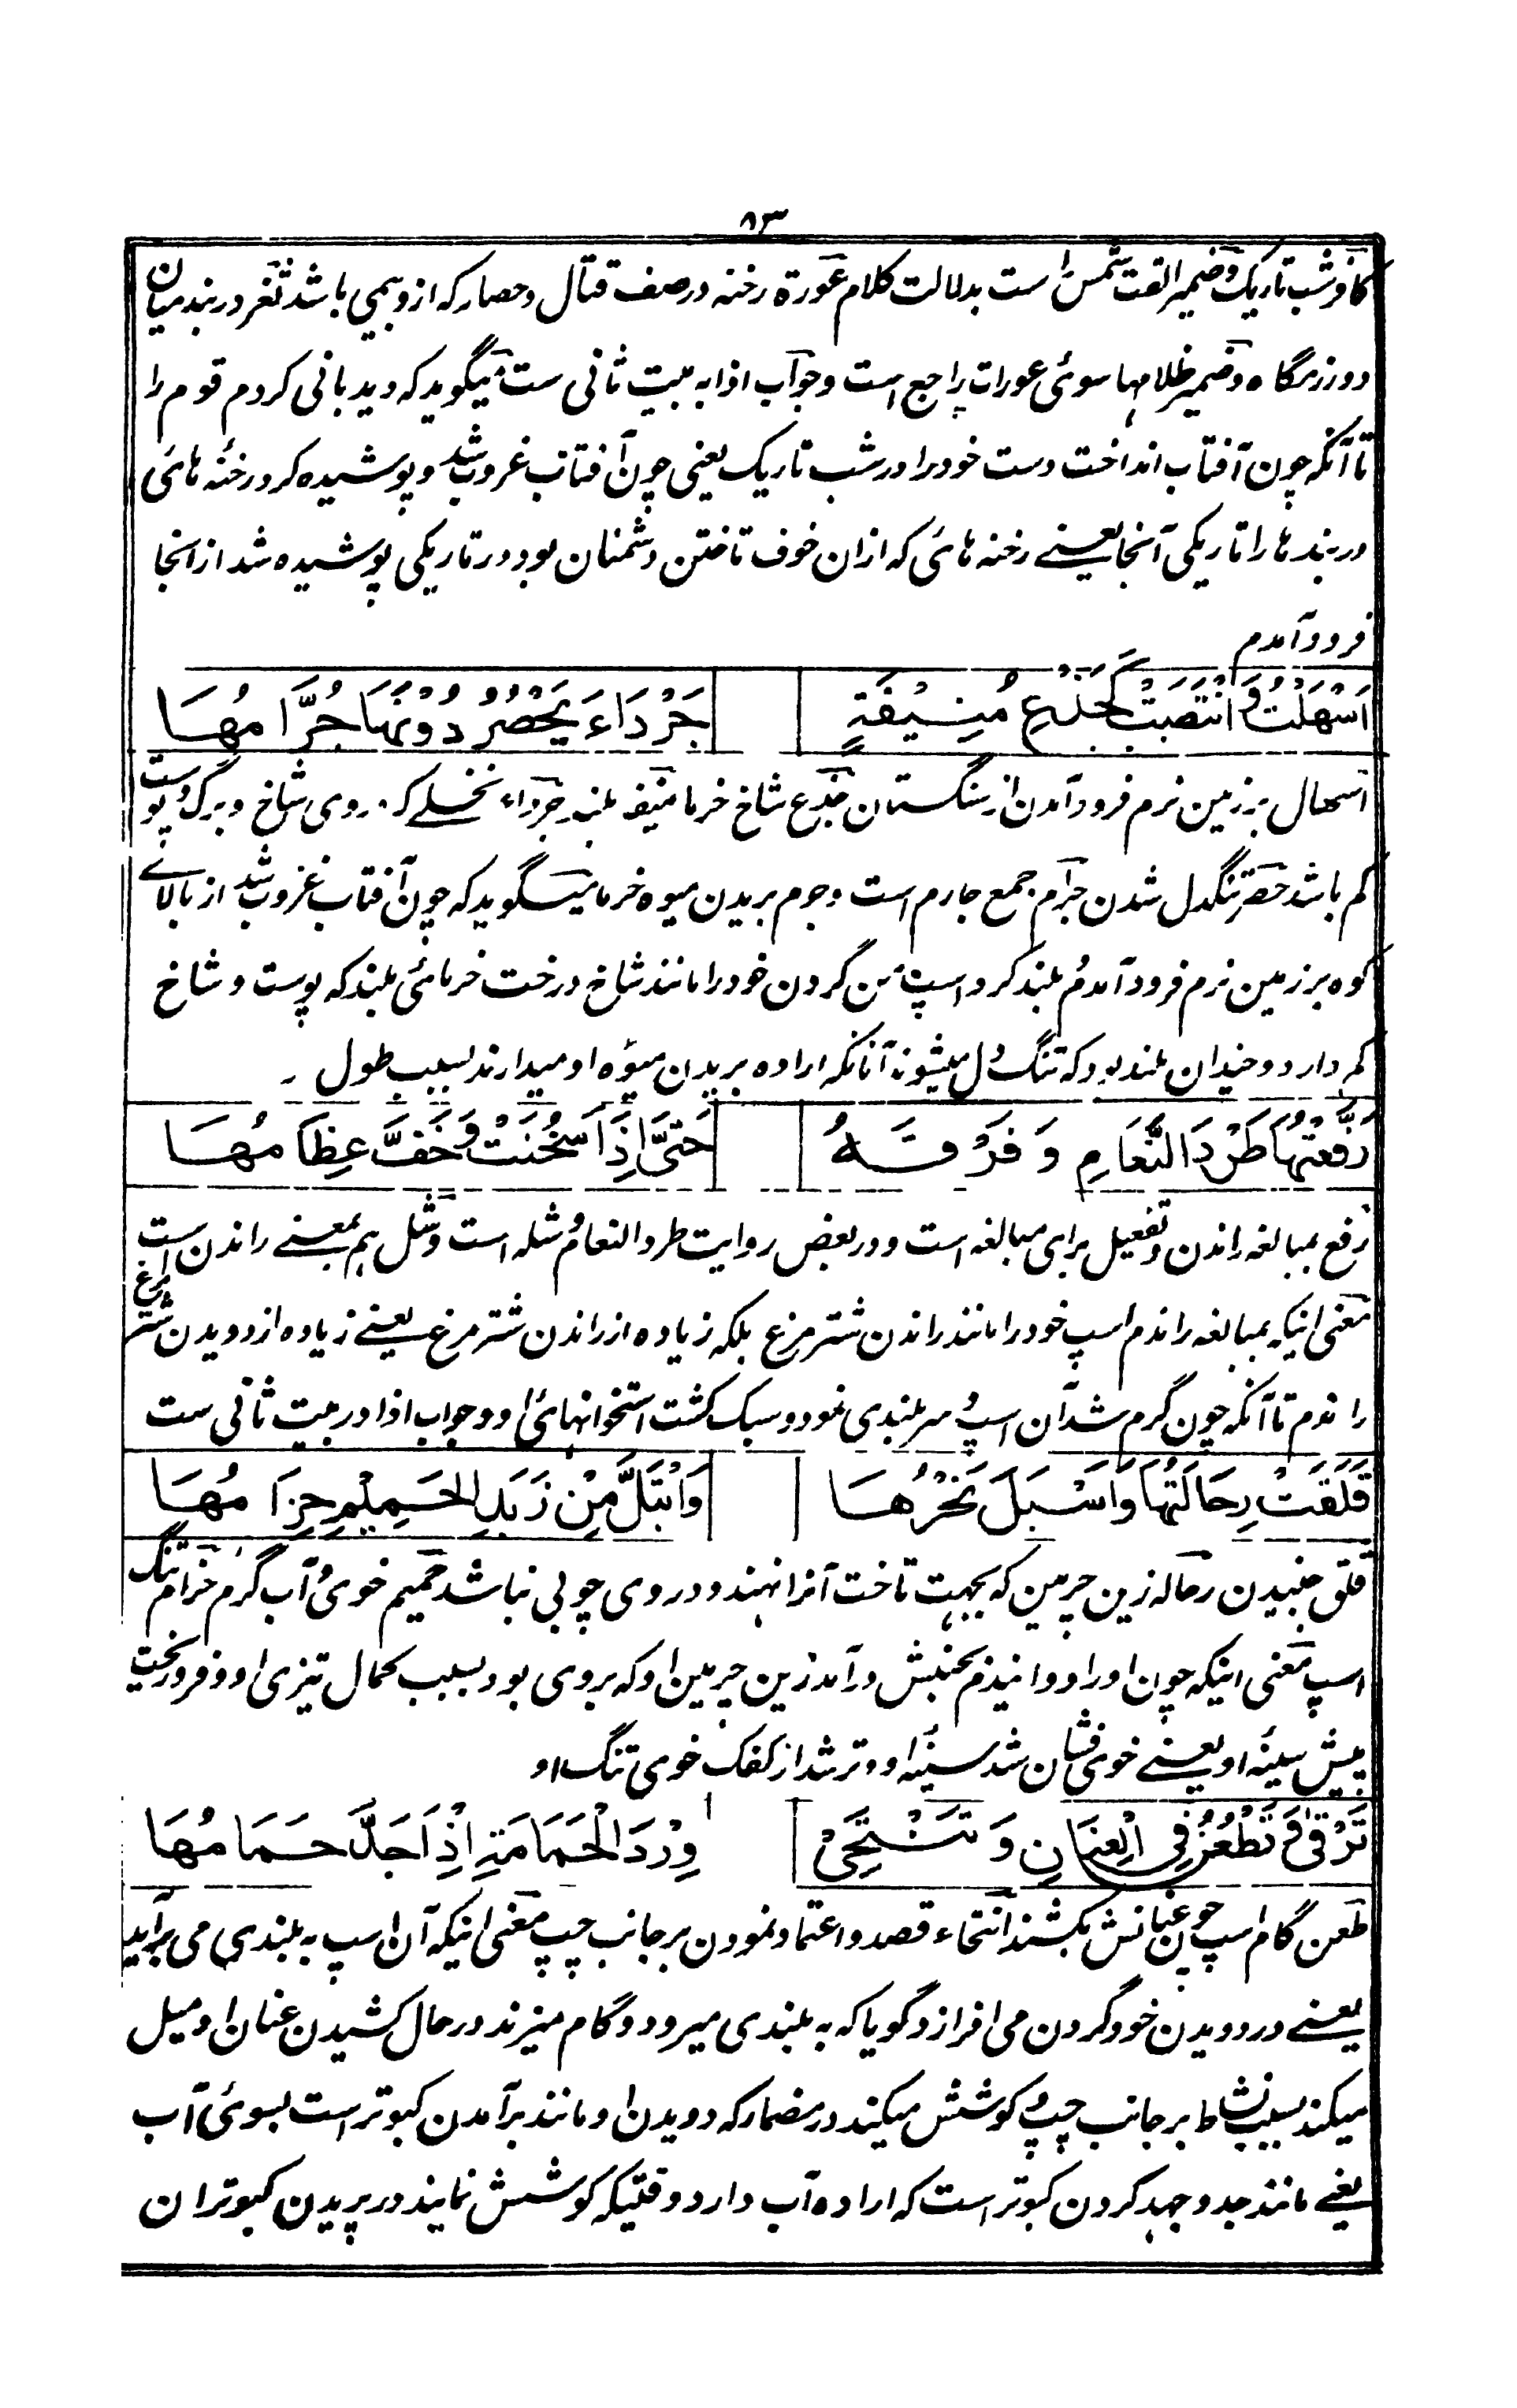 ۸۳
کافر شب تاریک و ضمیر القت شمس را ست بدلالت کلام عورة رخنه در صف قتال و حصار که ازو بیمی باشد ثغر دربند میان
دو رزمگاه و ضمیر ظلامها سوئی عورات راجع است و جواب اذا به بیت ثانی ست میگوید که دیدبانی کردم قوم را
تا آنکه چون آفتاب انداخت دست خود را در شب تاریک یعنی چون آفتاب غروب شد و پوشیده کرد رخنه هائی
دربندها را تاریکی آنجا یعنے رخنه هائی که ازان خوف تاختن دشمنان بود در تاریکی پوشیده شد از انجا
فرود آمدم
اَسْهَلْتُ وَانْتَصَبَتْ كَجِذْعِ مُنِيْفَةٍ جَرْدَاءَ يَحْصَرُ دُوْنَهَا جُرَّامُهَا
اسهال بر زمین نرم فرود آمدن از سنگستان جذع شاخ خرما منیفه بلند جرداء نخلے که بروی شاخ و برگ و پوست
کم باشد حصر تنگدل شدن جرام جمع جارم است و جرم بریدن میوه خرما میگوید که چون آفتاب غروب شد از بالائے
کوه بر زمین نرم فرود آمدم و بلند کرد اسپ من گردن خود را مانند شاخ درخت خرمائی بلند که پوست و شاخ
کم دارد و چندان بلند بود که تنگ دل میشوند آنانکه اراده بریدن میوه او میدارند بسبب طول ـ
رَفَّعْتُهَا طَرْدَ النَّعَامِ وَفَوْقَهُ حَتّٰى اِذَا سَخُنَتْ وَخَفَّ عِظَامُهَا
رفع بمبالغه راندن و تفعیل برای مبالغه است و در بعض روایت طرد النعام و شله است و شل هم بمعنے راندن است
معنی اینکه بمبالغه راندم اسپ خود را مانند راندن شتر مرغ بلکه زیاده از راندن شتر مرغ یعنے زیاده از دویدن شتر مرغ
راندم تا آنکه چون گرم شد آن اسپ و سربلندی نمود و سبک گشت استخوانهائی او و جواب اذا در بیت ثانی ست
قَلِقَتْ رِحَالَتُهَا وَاَسْبَلَ نَحْرُهَا وَابْتَلَّ مِنْ زَبَدِ الْحَمِيْمِ حِزَامُهَا
قلق جنبیدن رحاله زین چرمین که بجهت تاخت آنرا نهند و در وی چوبی نباشد حمیم خوی و آب گرم حزام تنگ
اسپ معنی اینکه چون او را دوانیدم بجنبش در آمد زین چرمین او که بروی بود بسبب کمال تیزی او و فرو ریخت
پیش سینه او یعنے خوی فشان شد سینه او و تر شد از کفک خوی تنگ او
تَرْقٰى وَتَطْعُنُ فِى الْعِنَانِ وَتَنْتَحِىْ وِرْدَ الْحَمَامَةِ اِذْ اَجَدَّ حَمَامُهَا
طعن گام اسپ چون عنانش بکشند انتحاء قصد و اعتماد نمودن بر جانب چپ معنی اینکه آن اسپ به بلندی می برآید
یعنے در دویدن خود گردن می افرازد گویا که به بلندی میرود و گام میزند در حال کشیدن عنان او میل
میکند بسبب نشاط بر جانب چپ و کوشش میکند در مضمار که دویدن او مانند برآمدن کبوتر است بسوئی آب
یعنے مانند جد و جهد کردن کبوتر است که اراده آب دارد وقتیکه کوشش نمایند در پریدن کبوتران